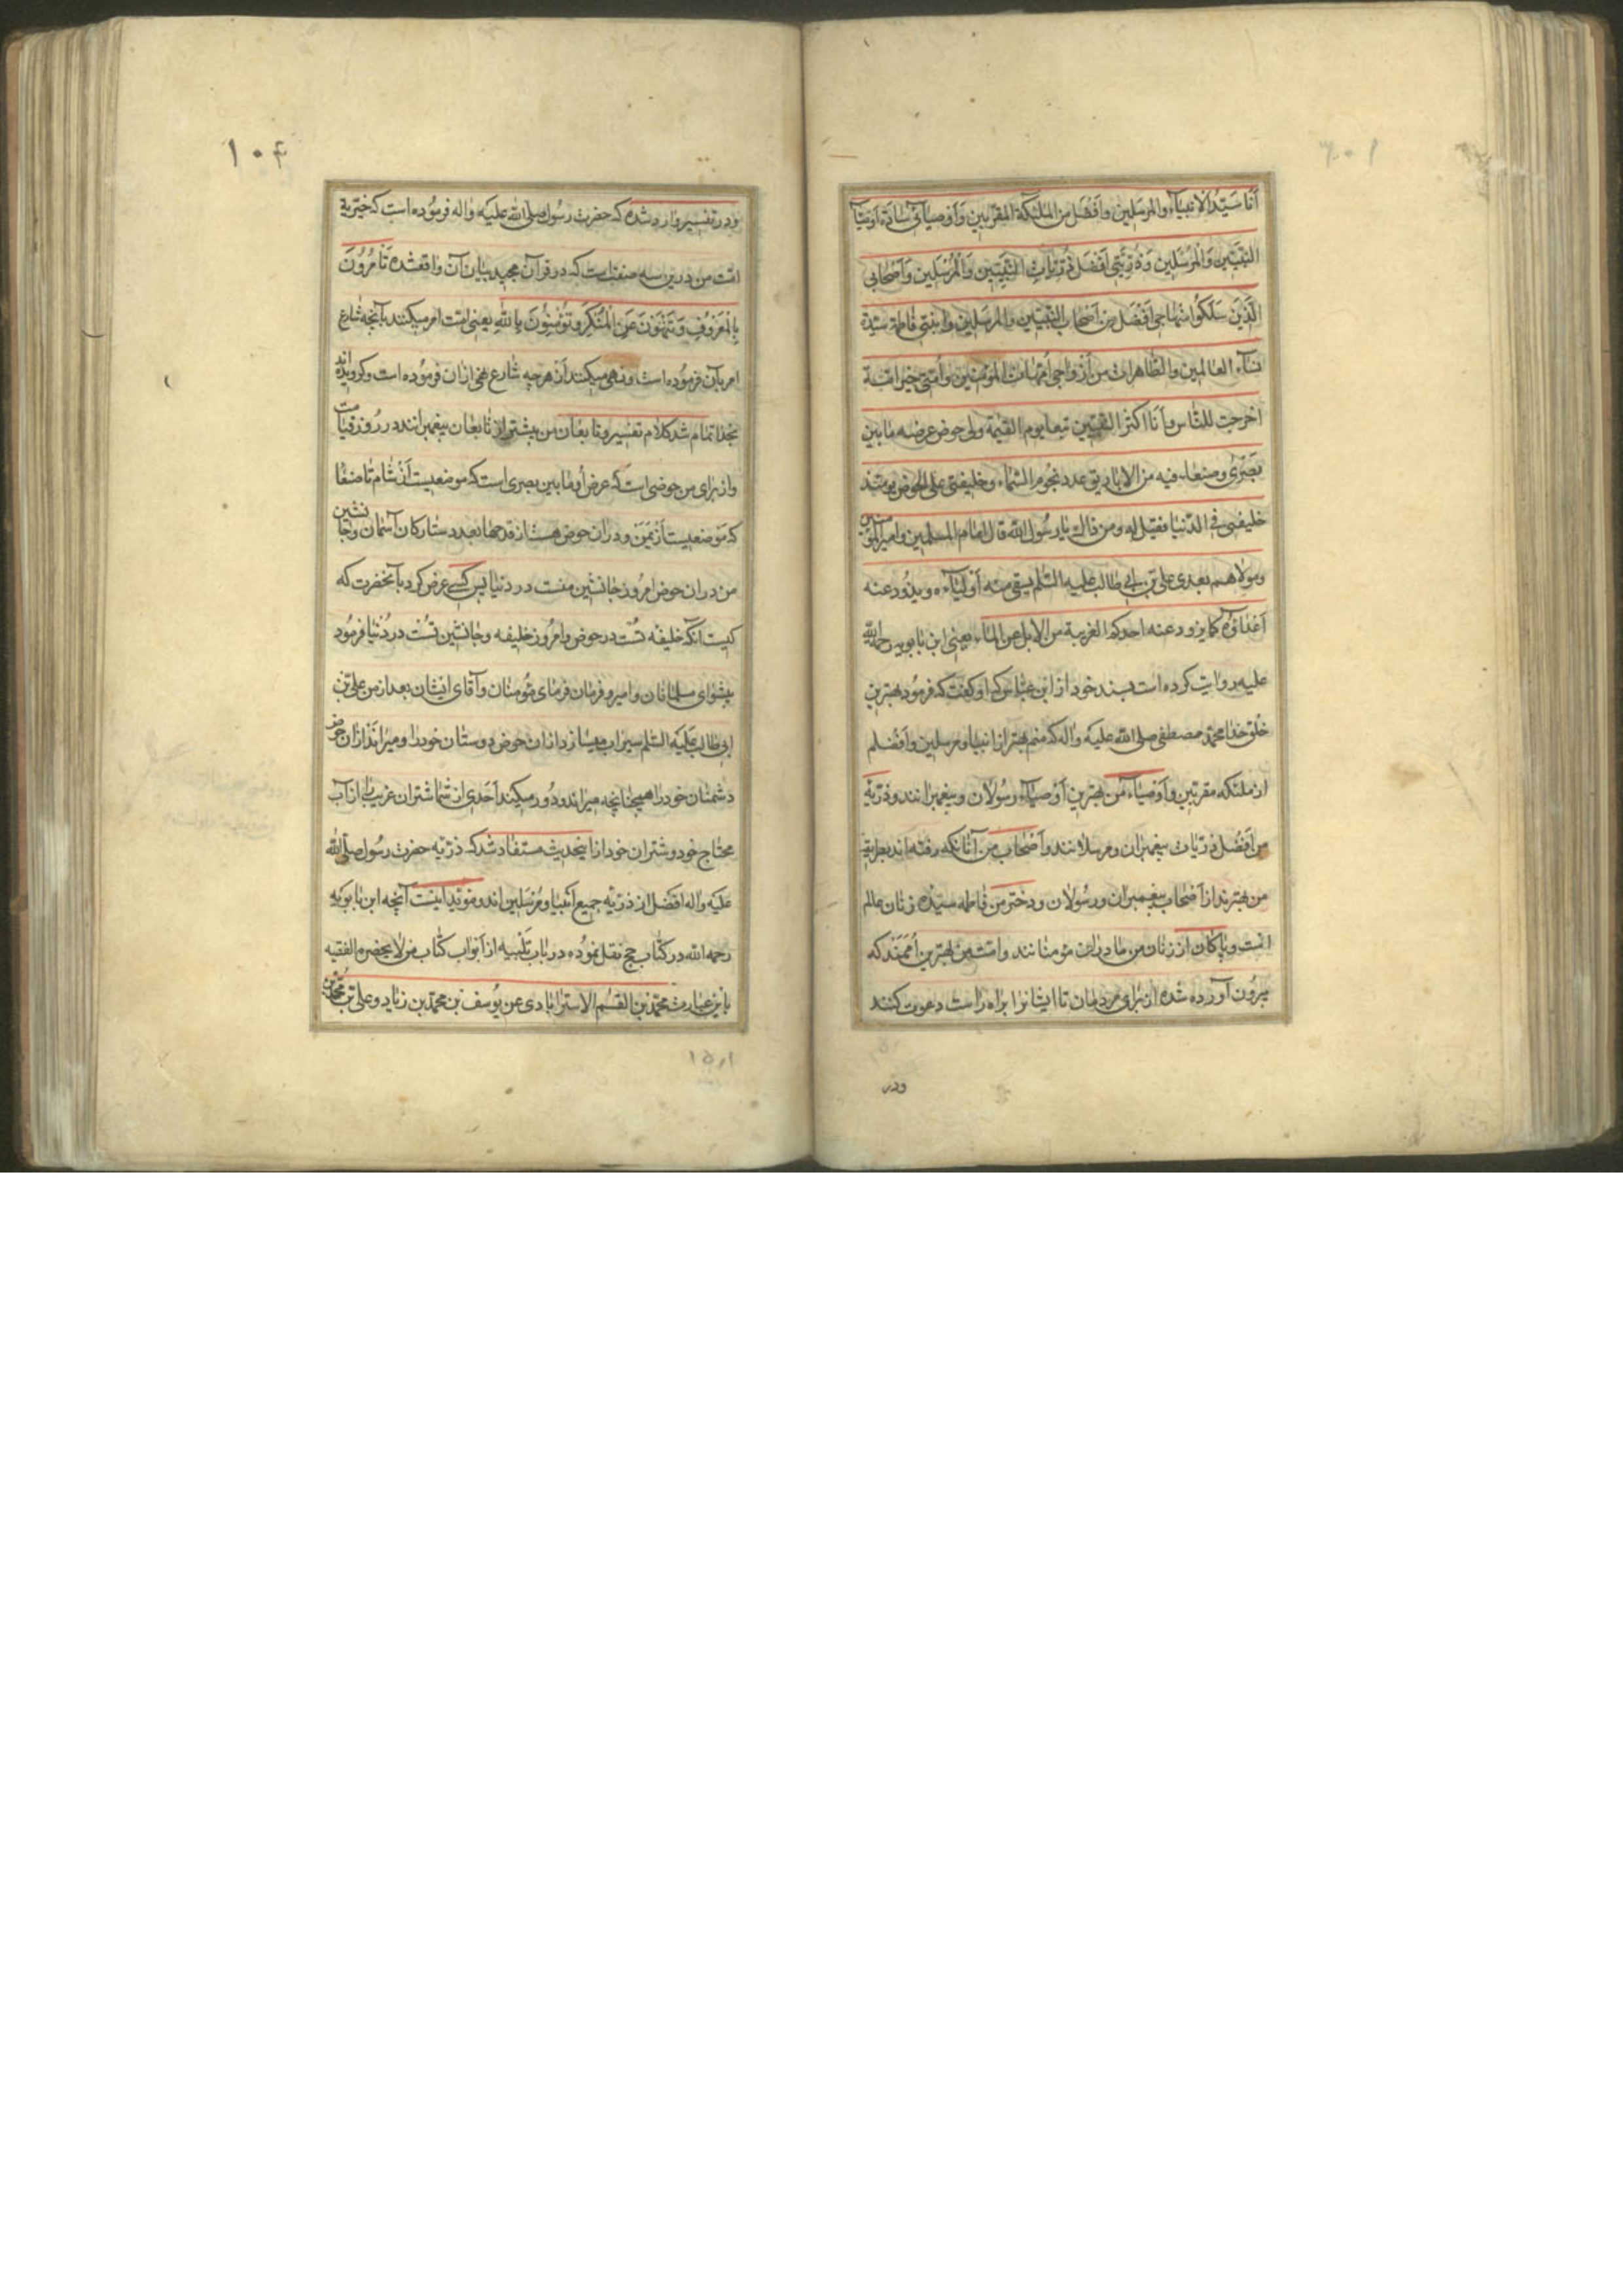 انا سید الانبیآء والمرسلین وافضل من الملئکة المقربین واوصیائی سادة اوصیآ
النبیین والمرسلین وذریتی افضل ذریات النبیین والمرسلین واصحابی
الذین سلکوا منهاجی افضل من اصحاب النبیین والمرسلین وابنتی فاطمة سیدة
نسآء العالمین والطاهرات من ازواجی امهات المؤمنین وامتی خیر امة
اخرجت للناس وانا اکثر النبیین تبعا یوم القیمة ولی حوض عرضه ما بین
بصری وصنعاء فیه من الاباریق عدد نجوم السماء وخلیفتی علی الحوض یومئذ
خلیفتی فی الدنیا فقیل له ومن ذاک یا رسول الله قال امام المسلمین وامیر المؤمنین
ومولاهم بعدی علی بن ابی طالب علیه السلم یسقی منه اولیآءه ویذود عنه
اعداؤه کما یذود عنه احدکم الغریبة من الابل عن الماء یعنی ابن بابویه رحمة الله
علیه روایت کرده است بسند خود از ابن عباس که او گفت که فرمود بهترین
خلق خدا محمد مصطفی صلی الله علیه واله که منم بهتر از انبیا ومرسلین وافضلم
از ملئکه مقربین واوصیاء من بهترین اوصیآء رسولان وپیغمبرانند وذریه
من افضل ذریات پیغمبران ومرسلانند واصحاب من آنانکه رفته اند بطریقه
من بهترند از اصحاب پیغمبران ورسولان ودختر من فاطمه سیده زنان عالم
است وپاکان از زنان من مادران مؤمنانند وامت من بهترین اممند که
بیرون آورده شده اند برای مردمان تا ایشانرا براه راست دعوت کنند
ودر
۱۰۴
ودر تفسیر وارد شده که حضرت رسول صلی الله علیه واله فرموده است که خیریة
امت من درین سه صفتست که در قرآن مجید بیان آن واقع شده تامرون
بالمعروف وتنهون عن المنکر وتؤمنون بالله یعنی امت امر میکنند بآنچه شارع
امر بآن فرموده است ونهی میکنند از هر چه شارع نهی ازان فرموده است وکرویده اند
بخدا تمام شد کلام تفسیر وتابعان من بیشتر از تابعان پیغمبرانند در روز قیامت
واز برای من حوضی است که عرض او ما بین بصری است که موضعیست از شام تا صنعا
که موضعیست از یمن ودران حوض هست از قدحها بعدد ستارکان آسمان وجانشین
من دران حوض امروز جانشین منست در دنیا پس کسی عرض کرد بآنحضرت که
کیست آنکه خلیفه تست در حوض وامروز خلیفه وجانشین تست در دنیا فرمود
پیشوای مسلمانان وامیر وفرمان فرمای مؤمنان وآقای ایشان بعد از من علی بن
ابی طالب علیه السلم سیراب میسازد ازان حوض دوستان خودرا ومیراند ازان حوض
دشمنان خودرا همچنانچه میراند ودور میکند احدی از شما شتران غریب را از آب
محتاج خود وشتران خود ازین حدیث مستفاد شد که ذریه حضرت رسول صلی الله
علیه واله افضل از ذریه جمیع انبیا ومرسلین اند ومؤید اینست آنچه ابن بابویه
رحمه الله در کتاب حج نقل نموده در باب تلبیه از ابواب کتاب من لا یحضره الفقیه
باین عبارت محمد بن القسم الاسترابادی عن یوسف بن محمد بن زیاد وعلی بن محمد بن